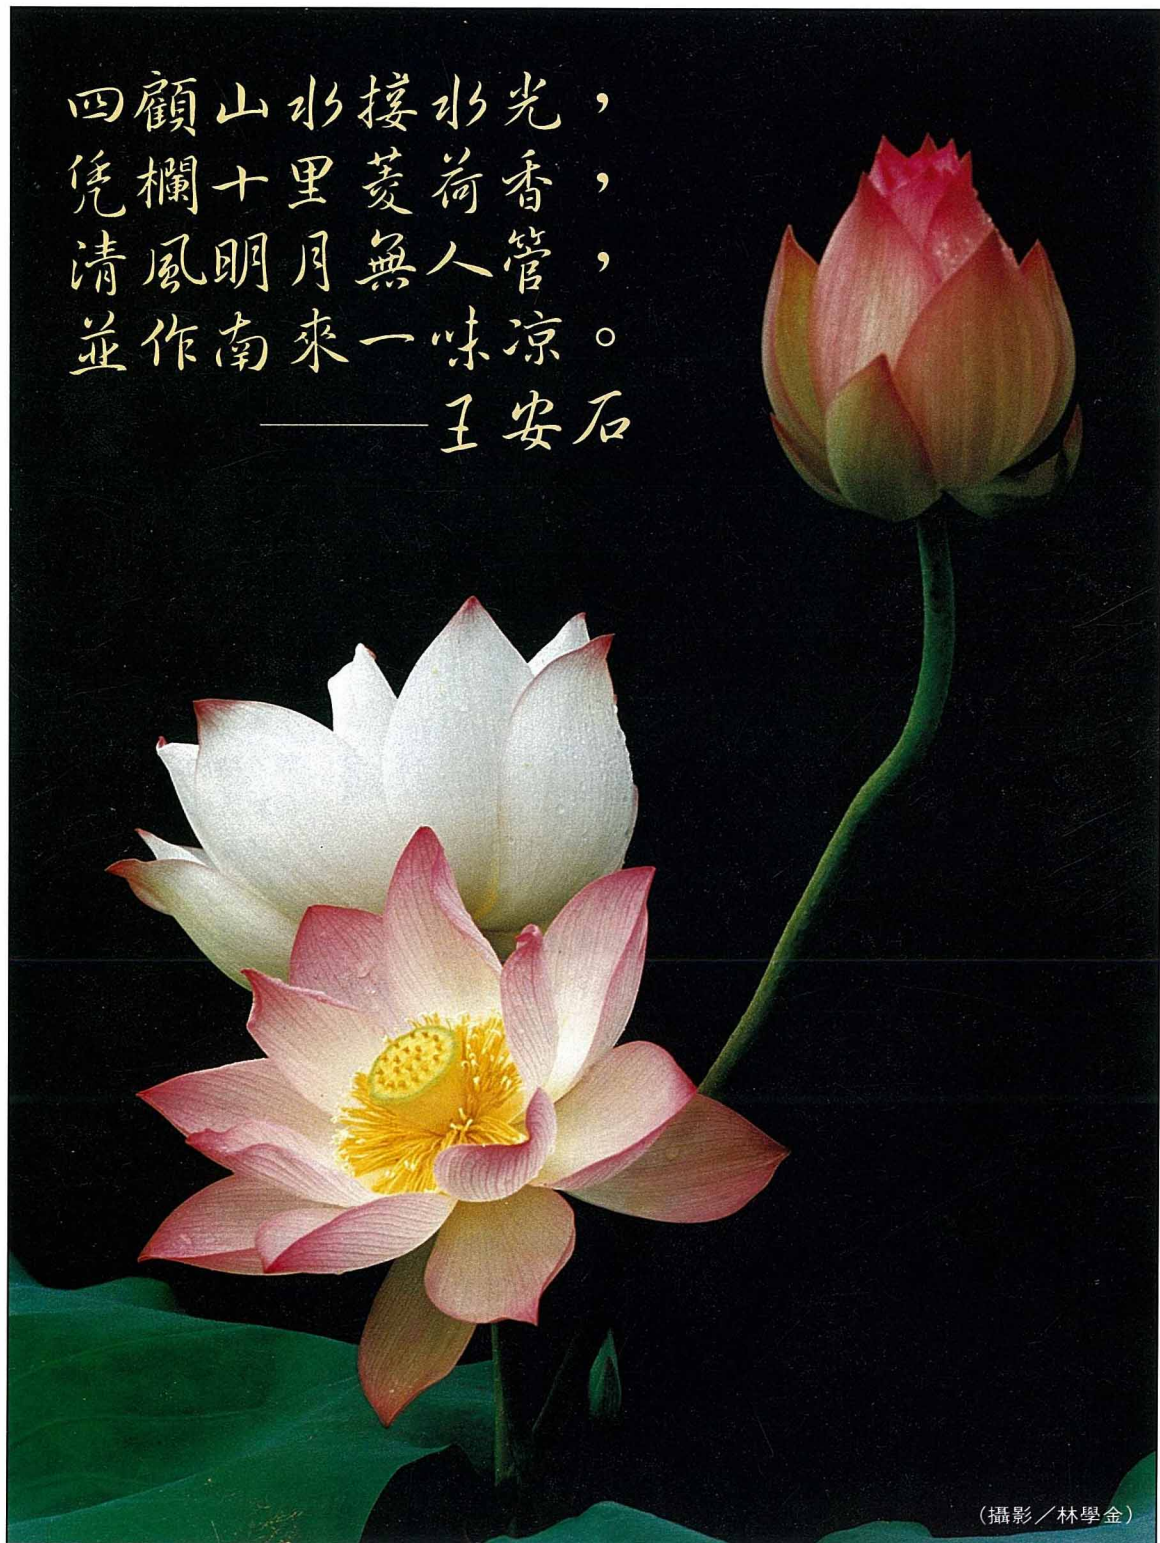 四顧山水接水光，
凭欄十里菱荷香，
清風明月無人管，
並作南來一味凉。
——王安石
(攝影／林學金)